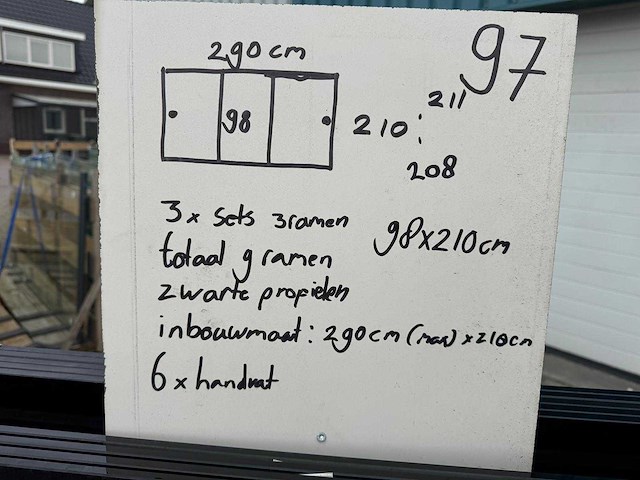 97
290 cm
98
210 :
211
208
3x sets 3ramen
98x210cm
totaal 9 ramen
zwarte profielen
inbouwmaat: 290cm (max) x 210cm
6 x handvat